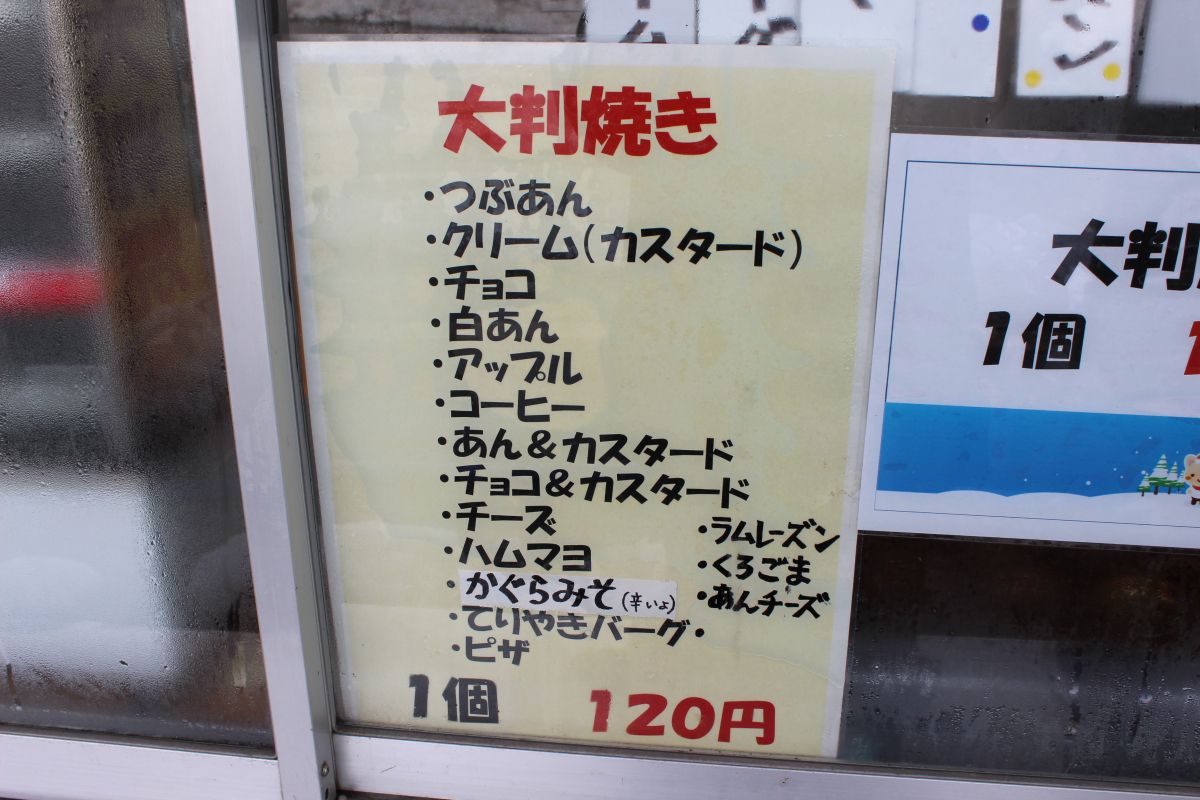 大判焼き
・つぶあん
・クリーム(カスタード)
・チョコ
・白あん
・アップル
・コーヒー
・あん&カスタード
・チョコ&カスタード
・チーズ
・ハムマヨ
・かぐらみそ(辛いよ)
・てりやきバーグ・
・ピザ
・ラムレーズン
・くろごま
・あんチーズ
1個 120円
大判
1個